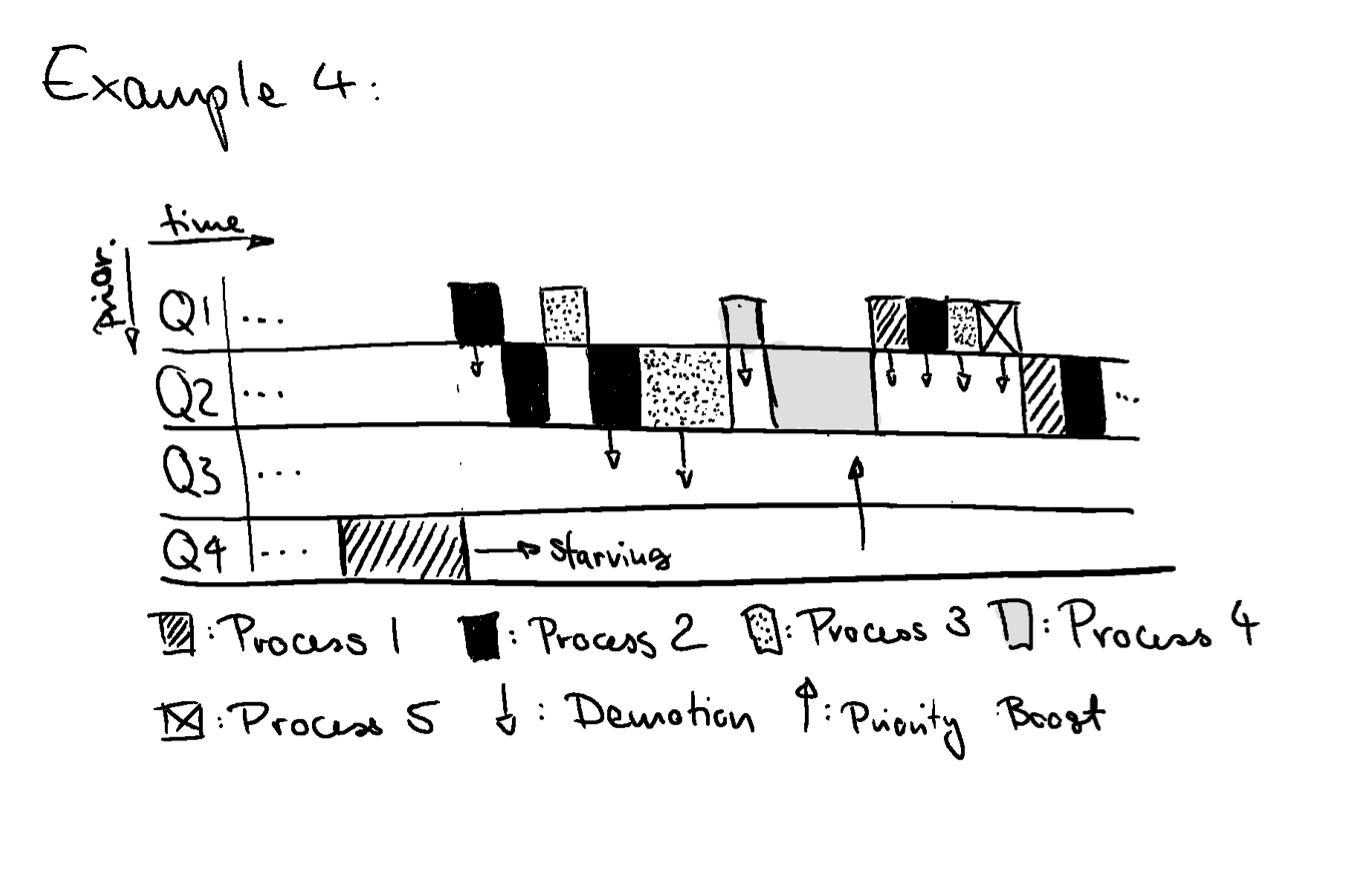 Example 4:
time
prior.
Q1 ...
Q2 ... ...
Q3 ...
Q4 .... starving
: Process 1 : Process 2 : Process 3 : Process 4
: Process 5 : Demotion : Priority Boost